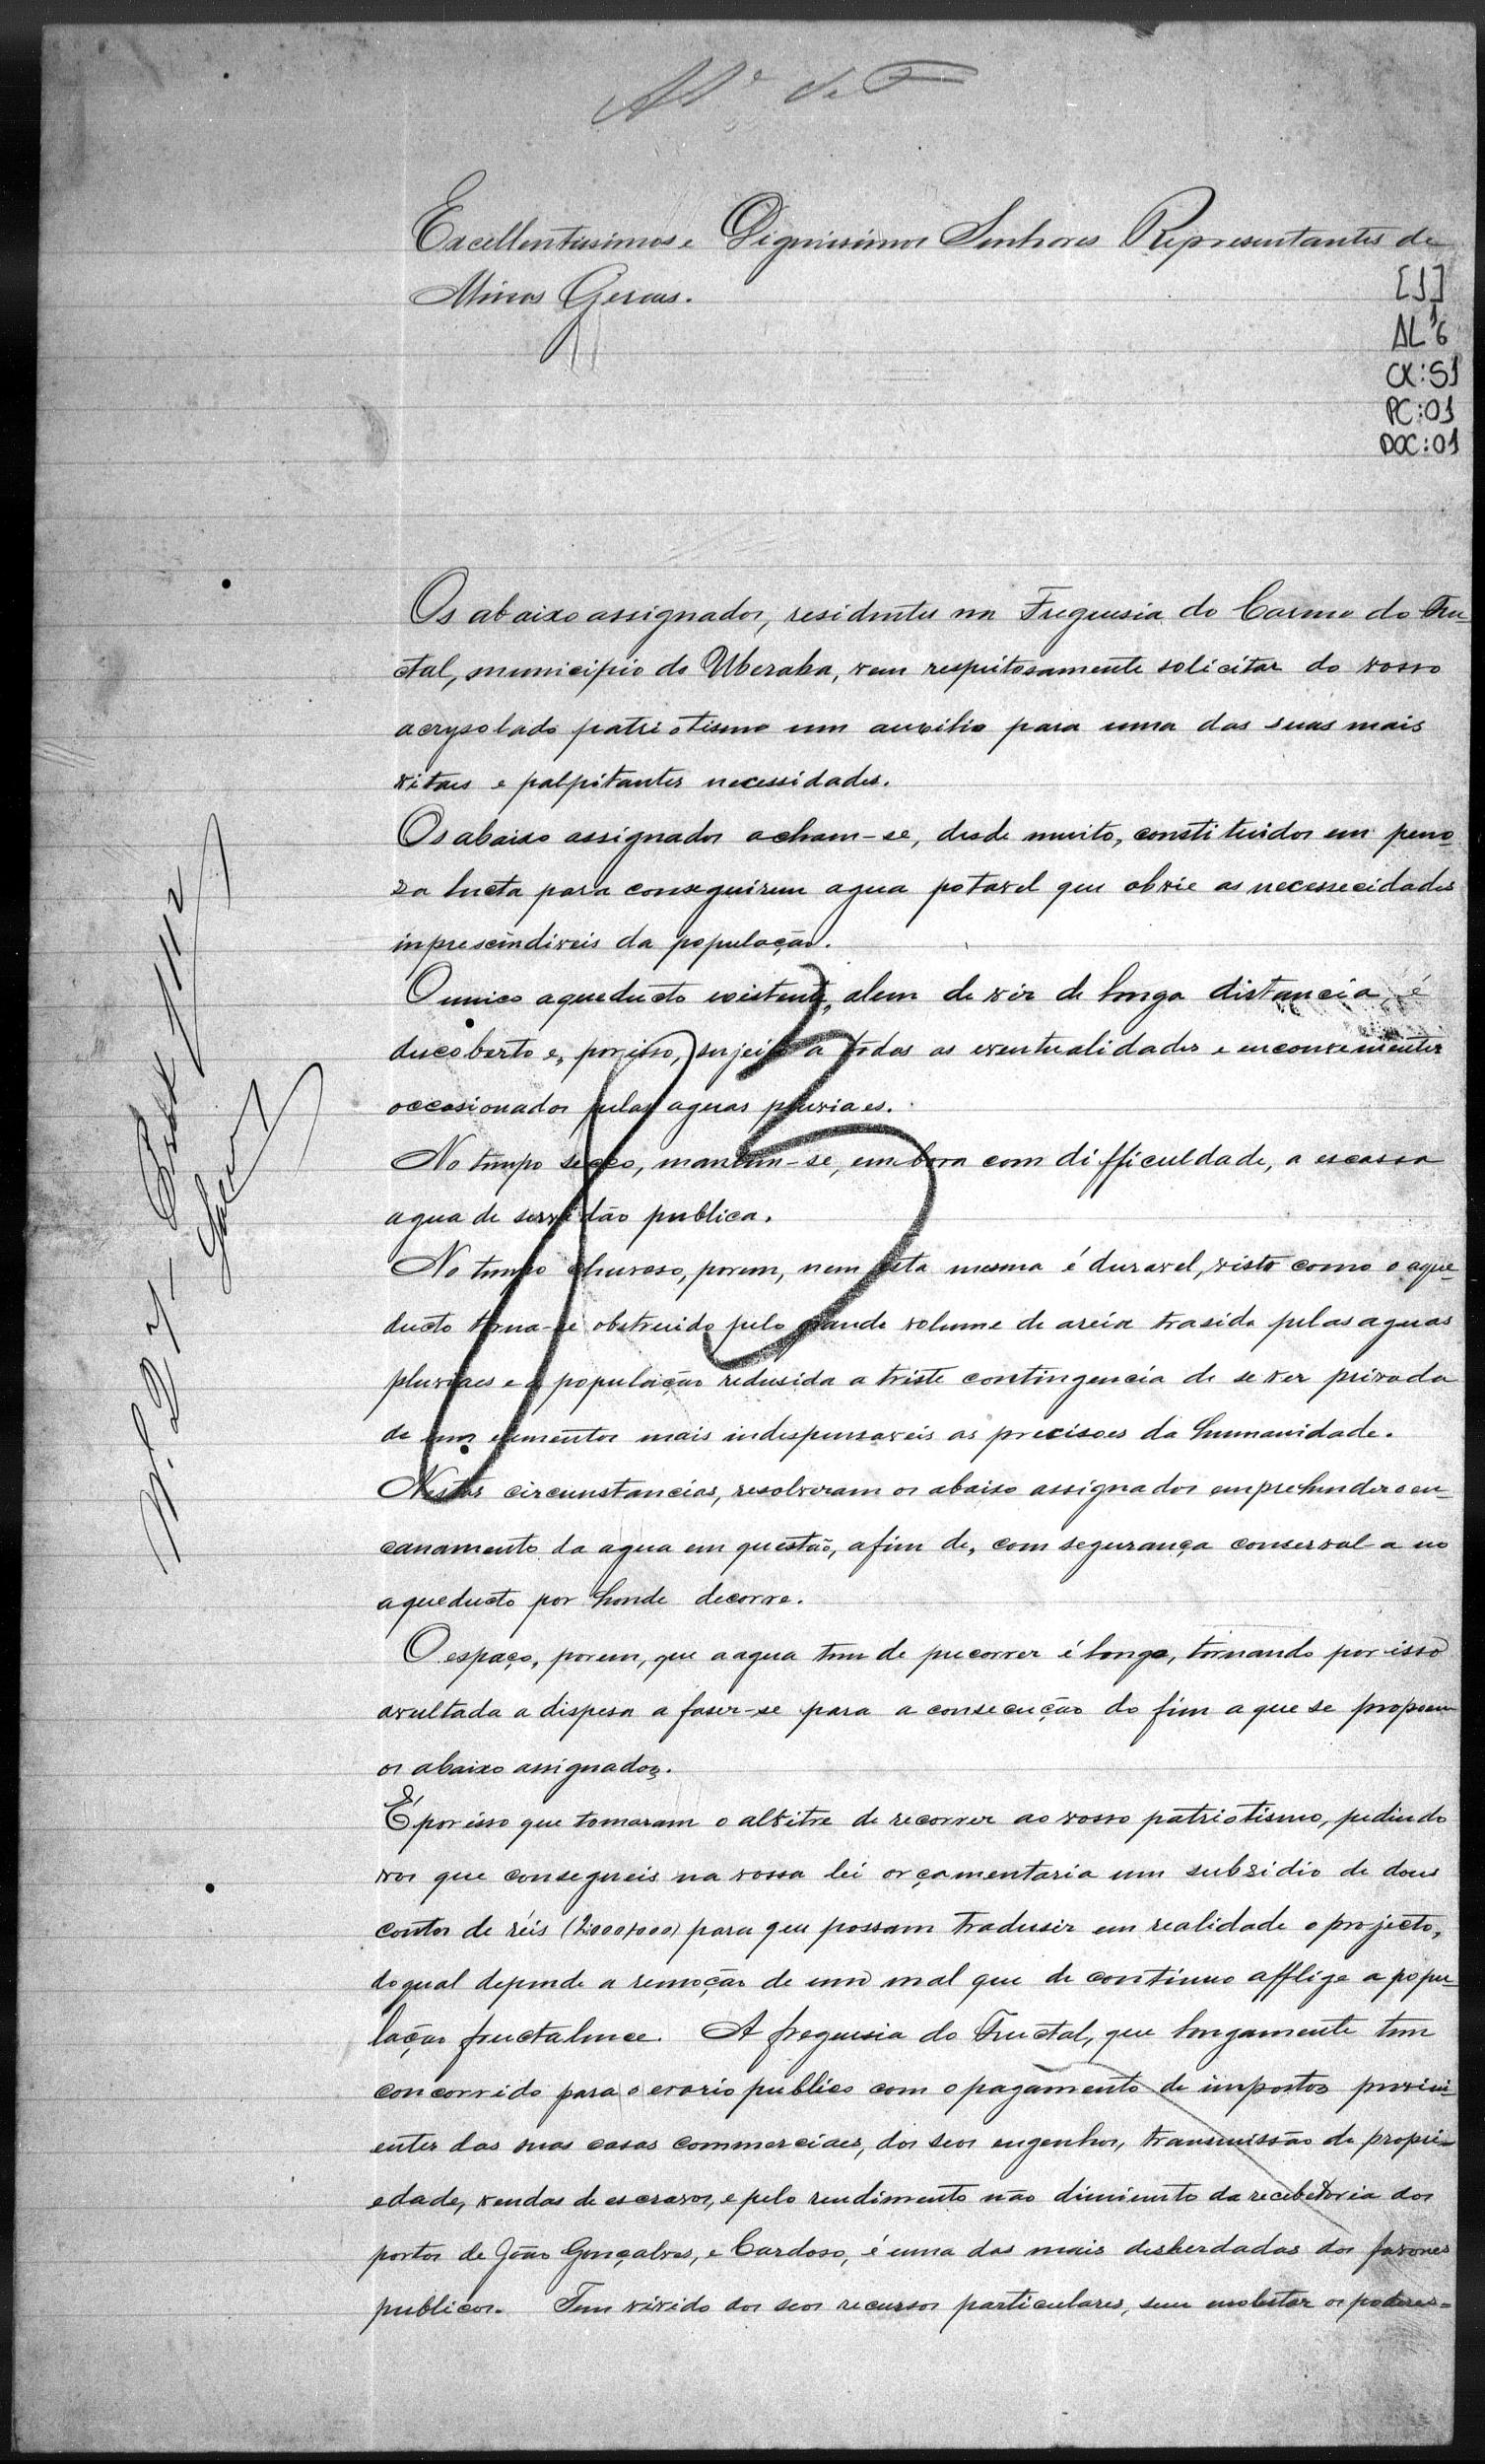 Excellentissimos e Dignissimos Senhores Representantes de
Minas Geraes.
[1]
AL 1 6
CX: 51
PC: 01
DOC: 01
Os abaixo assignados, residentes na Freguesia do Carmo do Fru-
ctal, municipio do Uberaba, vem respeitosamente solicitar do vosso
acrysolado patriotismo um auxilio para uma das suas mais
vitaes e palpitantes necessidades.
Os abaixo assignados acham-se, desde muito, constituidos em peno-
za lucta para conseguirem agua potavel que obvie as necessecidades
inprescindiveis da população.
O unico aqueducto existente, alem de vir de longa distancia, é
descoberto e, por isso, sujeito a todas as eventualidades e enconvenientes
occasionados pelas aguas pluviaes.
No tempo secco, mantem-se, embora com difficuldade, a escassa
agua de servidão publica.
No tempo chuvoso, porem, nem esta mesma é duravel, visto como o aque-
ducto torna-se obstruido pelo grande volume de areia trasida pelas aguas
pluviaes e a população redusida a triste contingencia de se ver privada
de uns elementos mais indespensaveis as precisoes da humanidade.
Nestas circunstancias, resolveram os abaixo assignados emprehender o en-
canamento da agua em questão, afim de, com segurança conserval-a no
aqueducto por honde decorre.
O espaço, porem, que a agua tem de precorrer é longo, tornando por isso
avultada a dispesa a faser-se para a consecução do fim a que se propoem
os abaixo assignados.
É por isso que tomaram o alvitre de recorrer ao vosso patriotismo, pedindo
vos que consegneis na vossa lei orçamentaria um subsidio de dous
contos de réis (2:000$000) para que possam tradusir em realidade o projecto,
do qual depende a remoção de um mal que de continuo afflige a popu-
lação fructalence. A freguesia do Fructal, que longamente tem
concorrido para o erario publico com o pagamento de impostos provini-
entes das suas casas commerciaes, dos seos engenhos, transmissão de propri-
edade, vendas de escravos, e pelo rendimento não diminuto da recebedoria dos
portos de João Gonçalves, e Cardoso, é uma das mais desherdadas dos favores
publicos. Tem vivido dos seos recursos particulares, sem molestar os poderes-